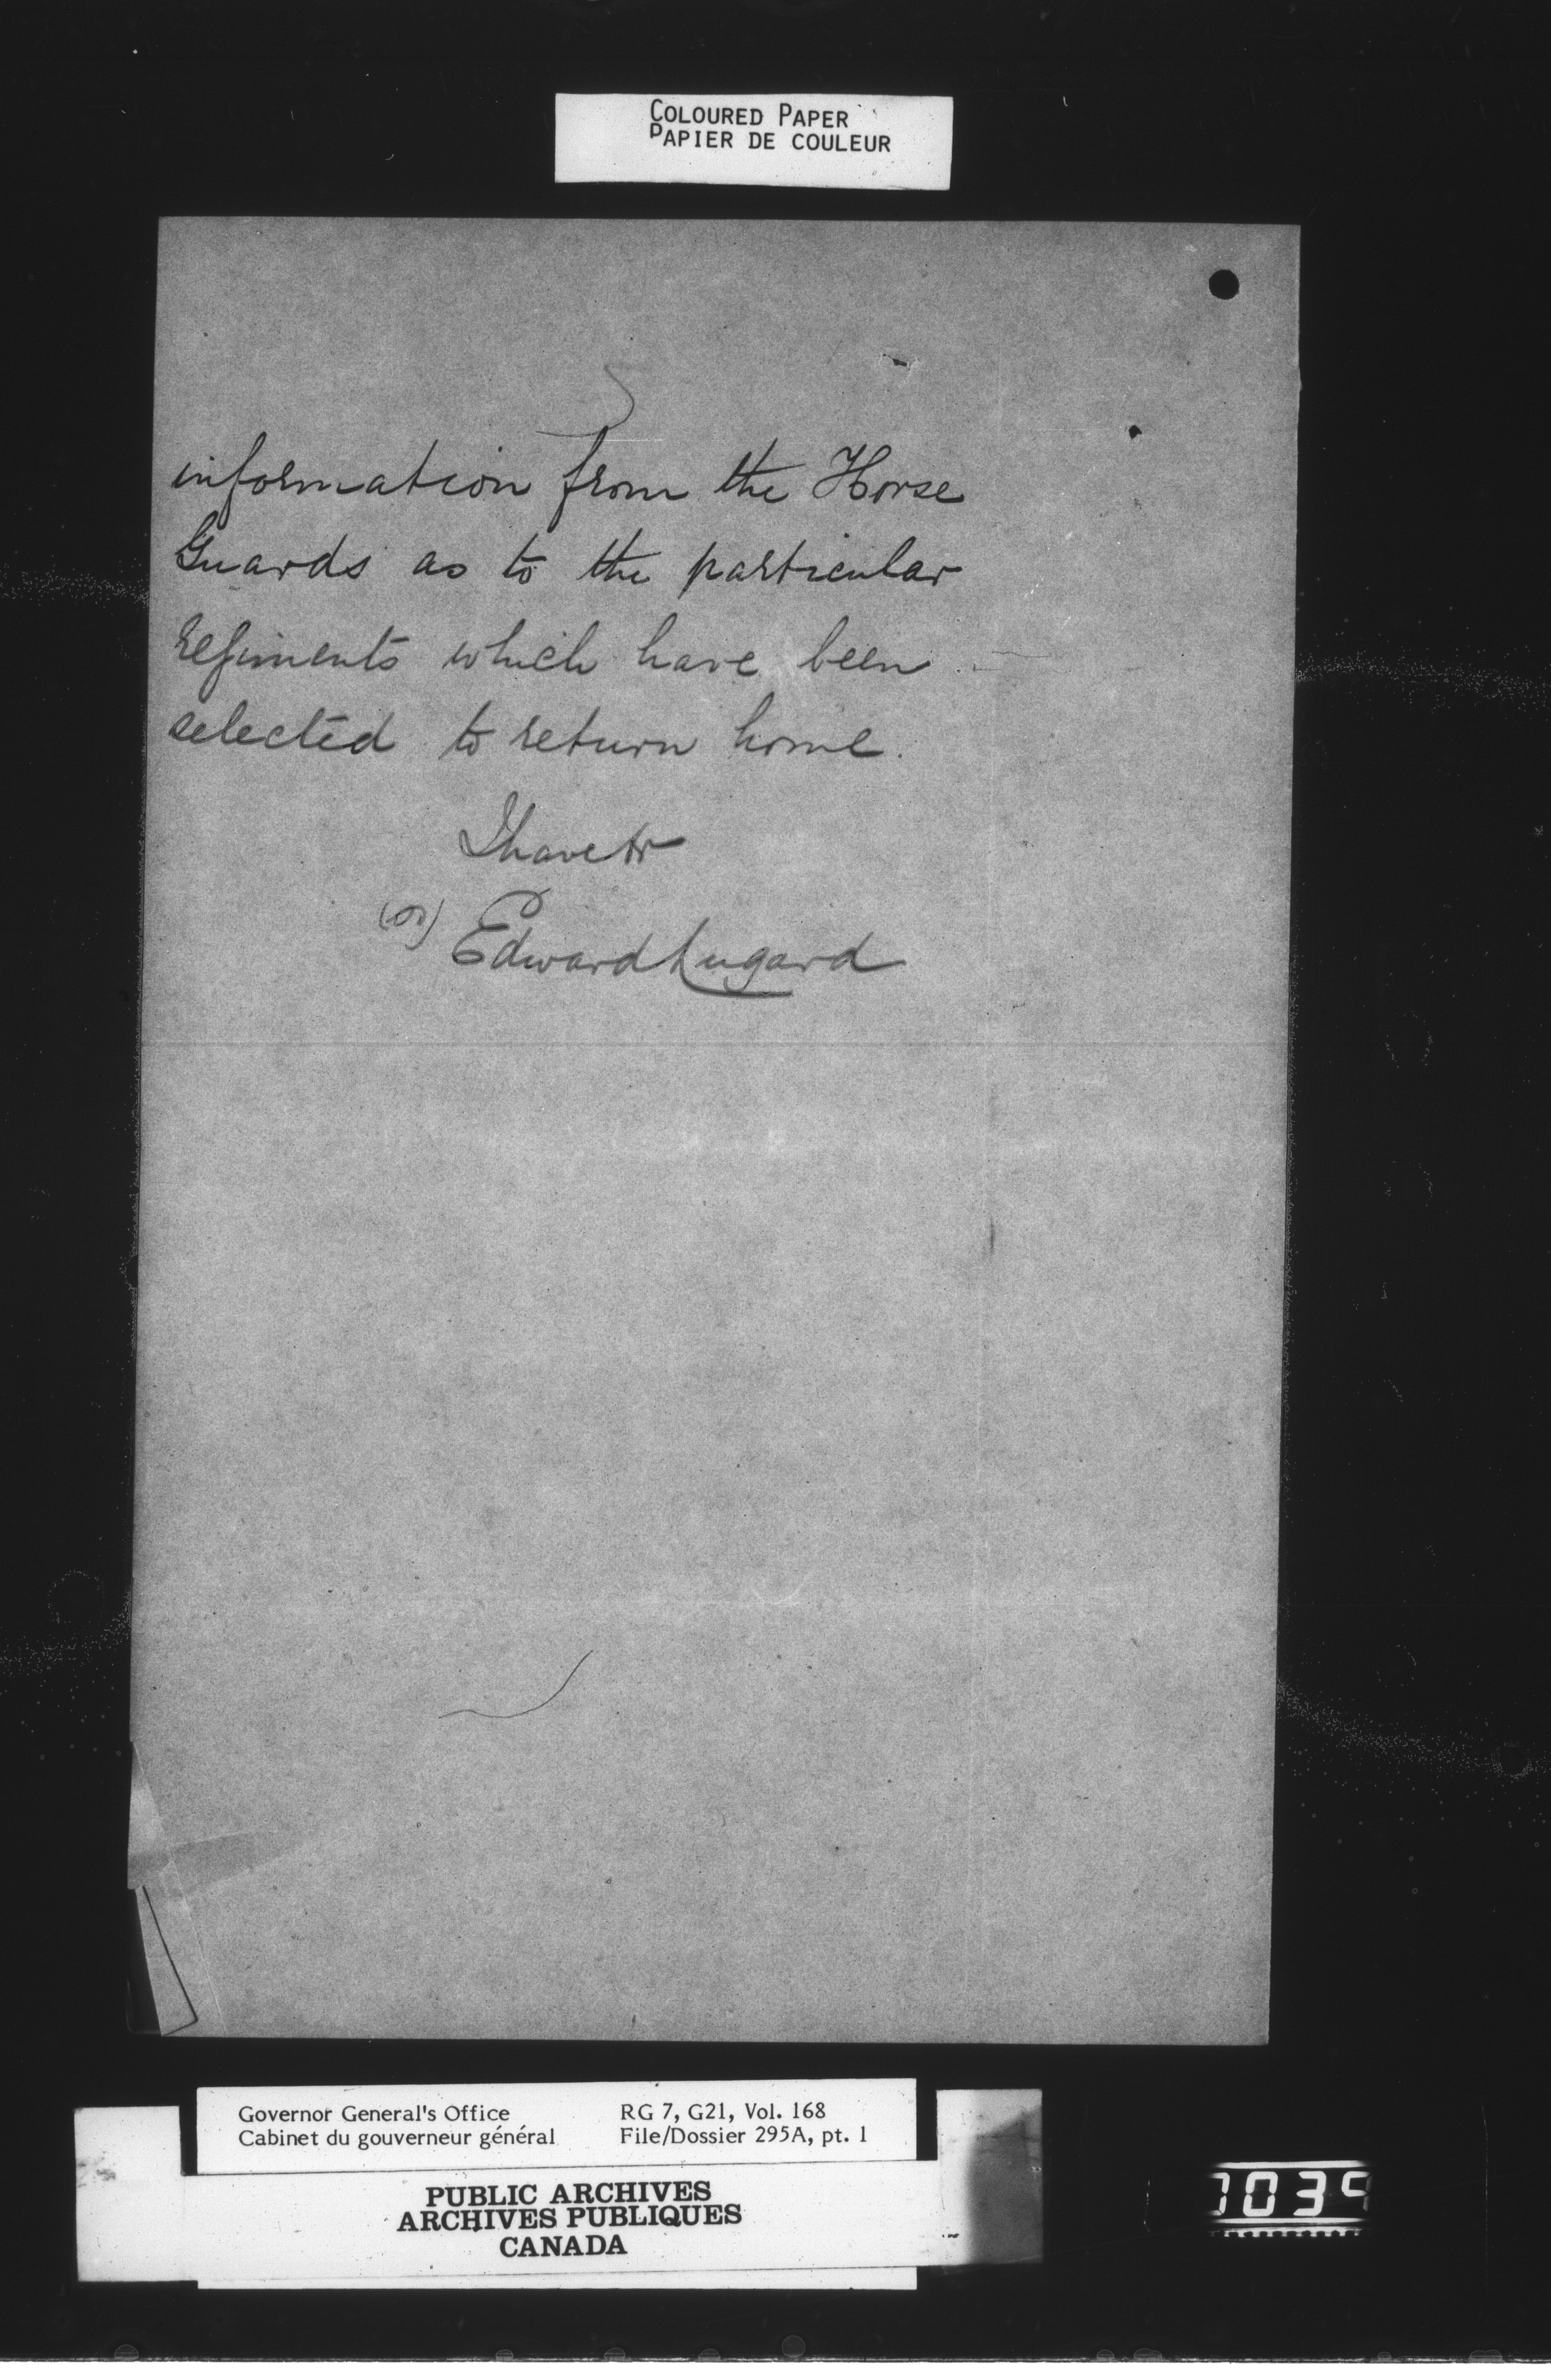 COLOURED PAPER
PAPIER DE COULEUR
information from the Horse
Guards as to the particular
regiments which have been
selected to return home.
I have &c
Edward Lugard
Governor General's Office
Cabinet du gouverneur général
RG 7, G21, Vol. 168
File/Dossier 295A, pt. 1
PUBLIC ARCHIVES
ARCHIVES PUBLIQUES
CANADA